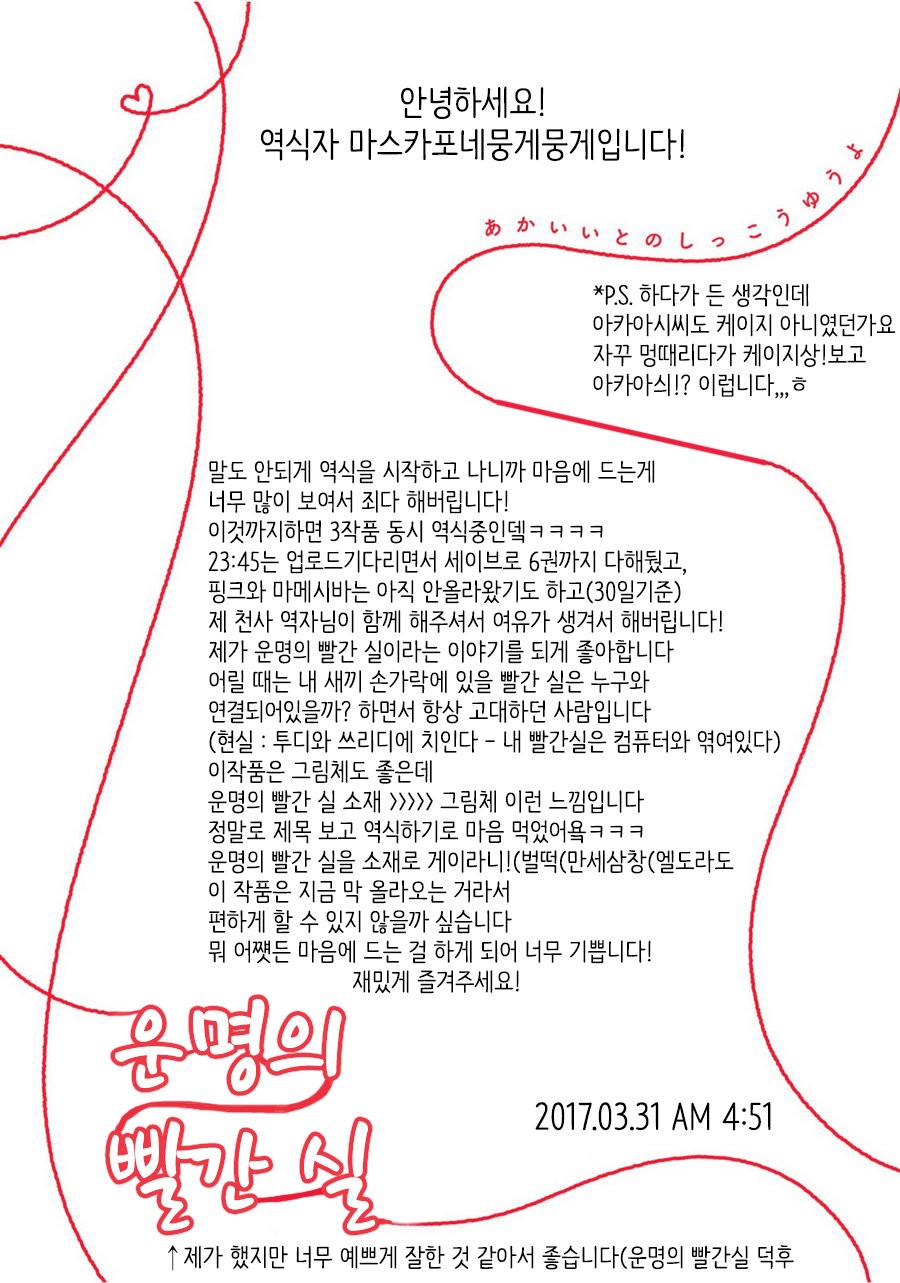 안녕하세요!
역식자 마스카포네뭉게뭉게입니다!
あかいいとのしっこうゆうよ
*P.S. 하다가 든 생각인데
아카아시씨도 케이지 아니였던가요
자꾸 멍때리다가 케이지상!보고
아카아싀!? 이럽니다,,,ㅎ
말도 안되게 역식을 시작하고 나니까 마음에 드는게
너무 많이 보여서 죄다 해버립니다!
이것까지하면 3작품 동시 역식중인뎈ㅋㅋㅋㅋ
23:45는 업로드기다리면서 세이브로 6권까지 다해뒀고,
핑크와 마메시바는 아직 안올라왔기도 하고(30일기준)
제 천사 역자님이 함께 해주셔서 여유가 생겨서 해버립니다!
제가 운명의 빨간 실이라는 이야기를 되게 좋아합니다
어릴 때는 내 새끼 손가락에 있을 빨간 실은 누구와
연결되어있을까? 하면서 항상 고대하던 사람입니다
(현실 : 투디와 쓰리디에 치인다 - 내 빨간실은 컴퓨터와 엮여있다)
이작품은 그림체도 좋은데
운명의 빨간 실 소재 >>>>> 그림체 이런 느낌입니다
정말로 제목 보고 역식하기로 마음 먹었어욬ㅋㅋㅋ
운명의 빨간 실을 소재로 게이라니!(벌떡(만세삼창(엘도라도
이 작품은 지금 막 올라오는 거라서
편하게 할 수 있지 않을까 싶습니다
뭐 어쨋든 마음에 드는 걸 하게 되어 너무 기쁩니다!
재밌게 즐겨주세요!
운명의
빨간 실
2017.03.31 AM 4:51
↑제가 했지만 너무 예쁘게 잘한 것 같아서 좋습니다(운명의 빨간실 덕후